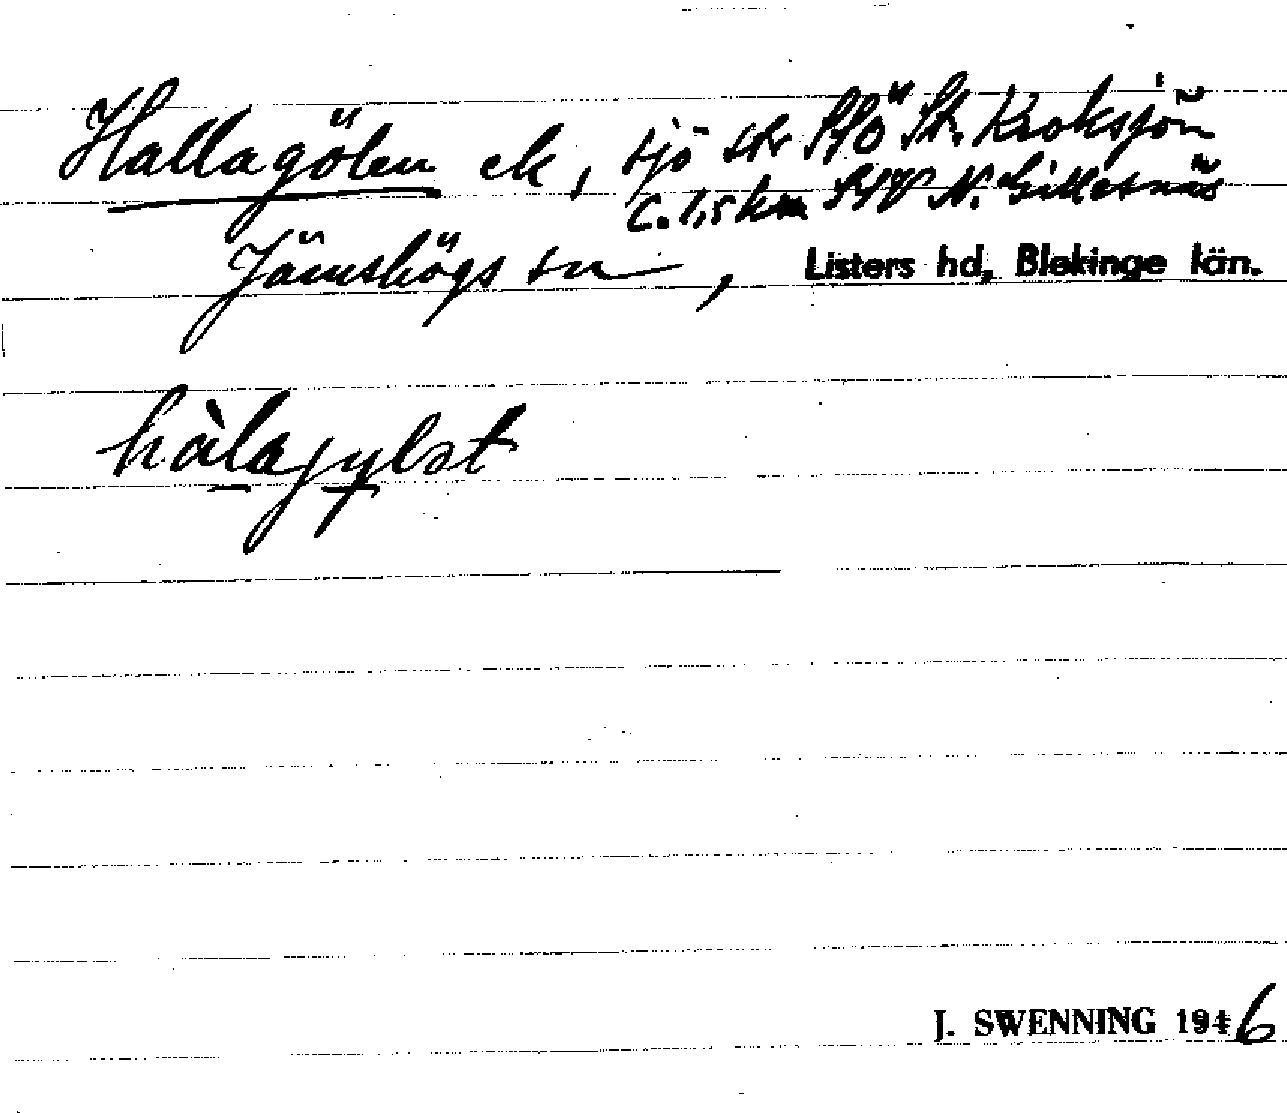 Hallagölen ek, sjö str SSÖ St. Kroksjön
c. 1,5 km SSV N. Gillesnäs
Jämshögs sn, Listers hd, Blekinge län.
hàlagylət
J. SWENNING 1946